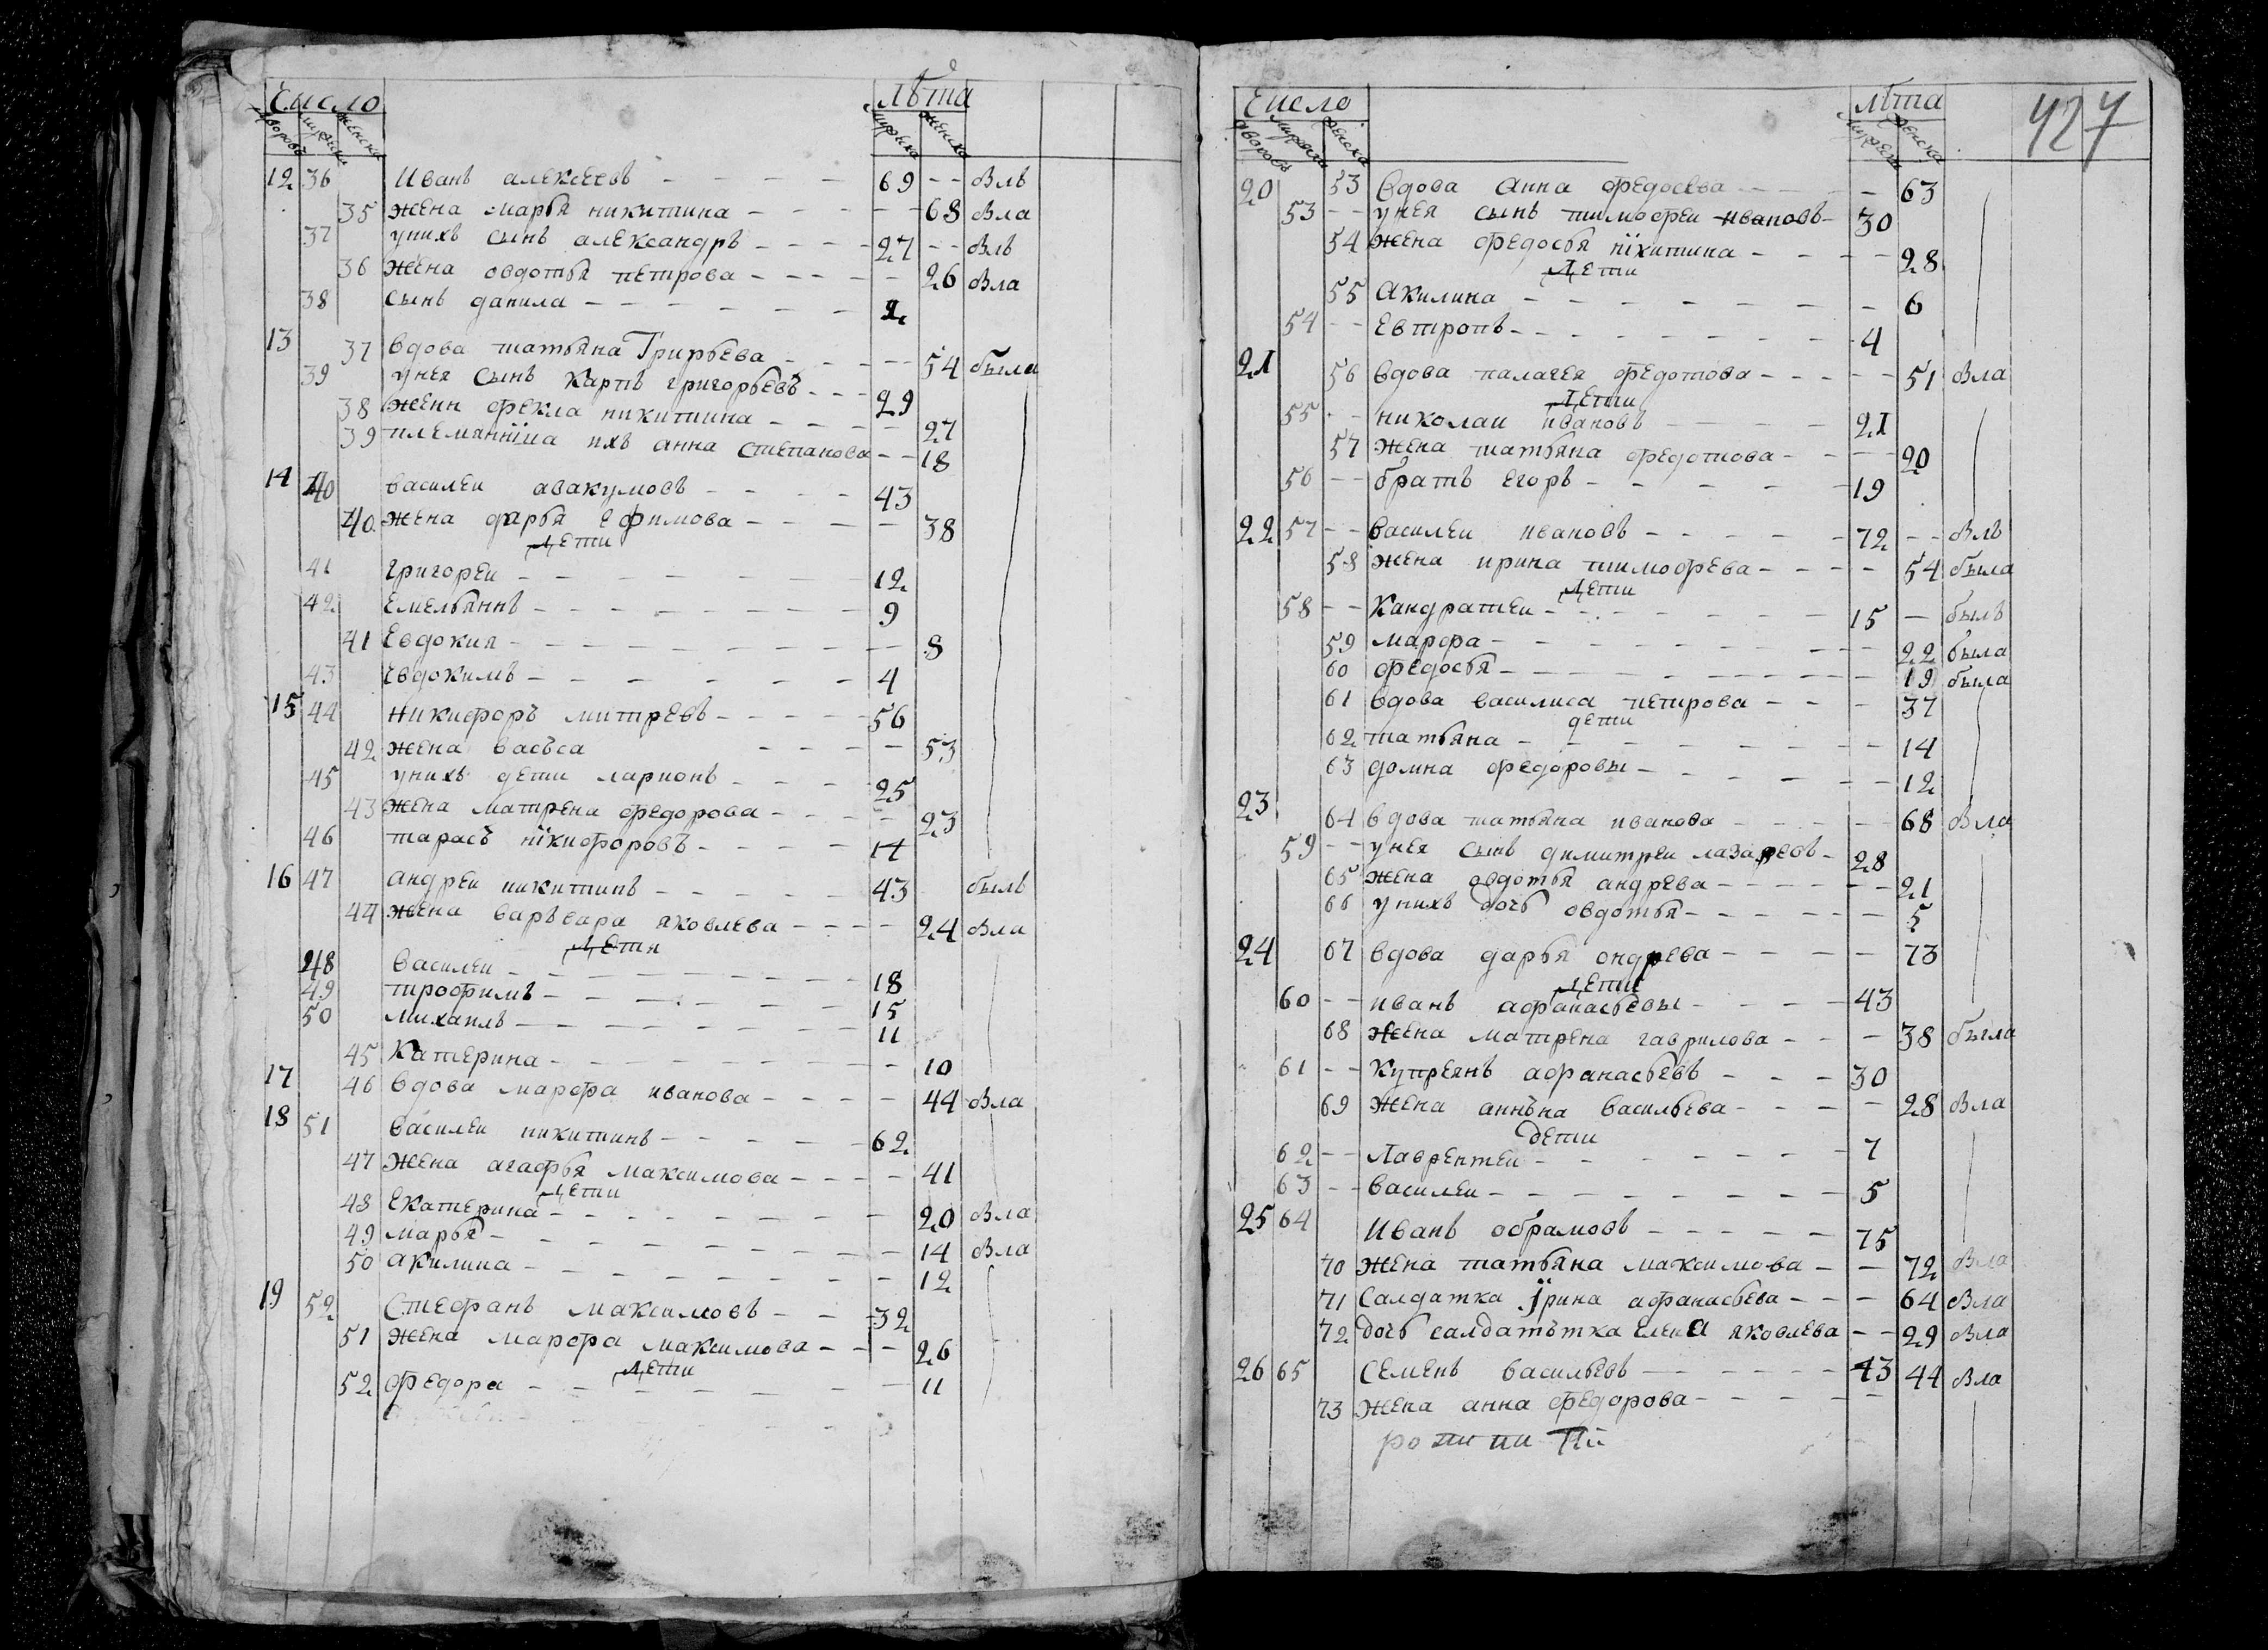 Число Лѣта
дворовъ мужска женска мужска женска
12 36 Иванъ алексеевъ 69 -- былъ
35 жена марья никитина 68 была
37 унихъ сынъ александръ 27 -- былъ
36 жена овдотья петрова 26 была
38 сынъ данила 2
13 37 вдова татьяна Григрьева 54 была
39 унея сынъ карпъ григорьевъ 29
38 женн фекла никитина 27
39 племянніца ихъ анна степанова 18
14 40 василеи авакумовъ 43
40 жена дарья Ефимова 38
Дети
41 григореи 12
42 Емельяннъ 9
41 Евдокия 8
43 Евдокимъ 4
15 44 Никифоръ митревъ 56
42 жена васъса 53
45 унихъ дети ларионъ 25
43 жена матрена федорова 23
46 тарасъ нікифоровъ 14
16 47 андреи никитинъ 43 былъ
44 жена варъвара яковлева 24 была
Дети
48 василеи 18
49 трофимъ 15
50 михаилъ 11
45 Катерина 10
17 46 вдова марфа иванова 44 была
18 51 василеи никитинъ 62
47 жена агафья максимова 41
Дети
48 Екатерина 20 была
49 марья 14 была
50 акилина 12
19 52 Стефанъ максимовъ 32
51 жена марфа максимова 26
Дети
52 федора 11
Число Лѣта
дворовъ мужска женска мужска женска
427
20 53 вдова анна федосева 63
53 -- унея сынъ тимофеи ивановъ 30
54 жена федосья нікитина 28
Дети
55 акилина 6
54 -- Евтропъ 4
21 56 вдова палагея федотова 51 была
Дети
55 -- николаи ивановъ 21
57 жена татьяна федотова 20
56 -- братъ егоръ 19
22 57 -- василеи ивановъ 72 -- былъ
58 жена ирина тимофева 54 была
Дети
58 -- Кандратеи 15 -- былъ
59 марфа 22 была
60 федосья 19 была
61 вдова василиса петрова 37
дети
62 татьяна 14
63 домна федоровы 12
23 64 вдова татьяна иванова 68 была
59 -- унея сынъ димитреи лазаревъ 28
65 жена овдотья андрева 21
66 унихъ дочь овдотья 5
24 67 вдова дарья ондрева 73
Дети
60 -- иванъ афанасьевы 43
68 жена матрена гаврилова 38 была
61 -- Купреянъ афанасьевъ 30
69 жена аннъна васильева 28 была
дети
62 -- Лаврентеи 7
63 -- василеи 5
25 64 Иванъ обрамовъ 75
70 жена татьяна максимова 72 была
71 Салдатка Їрина афанасьева 64 была
72 дочь салдатътка елена яковлева 29 была
26 65 Семенъ васильевъ 43 44 была
73 жена анна федорова